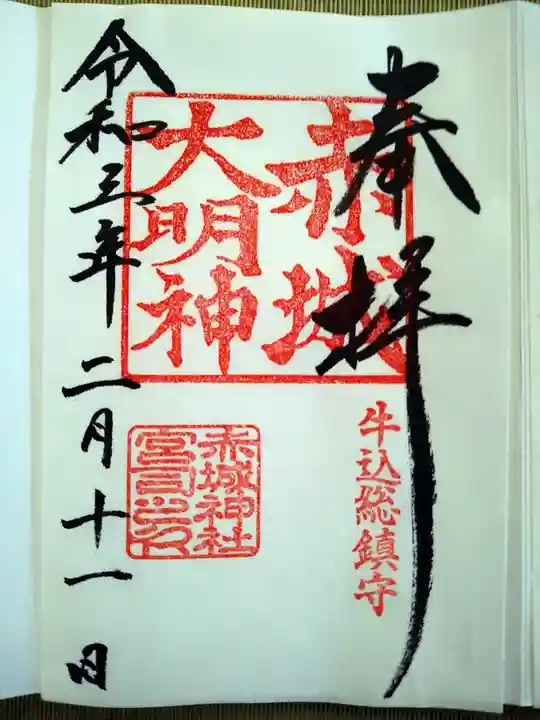 奉拝
牛込総鎮守
赤城
大明神
赤城神社
宮司之印
令和三年二月十一日